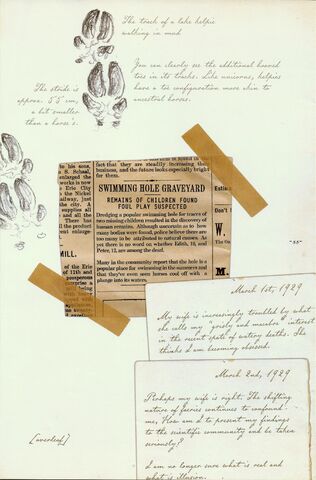 The track of a lake kelpie
walking in mud
You can clearly see the additional hooved
toes in its tracks. Like unicorns, kelpies
have a toe configuration more akin to
ancestral horses.
The stride is
approx. 55 cm,
a bit smaller
than a horse's.
to his sons,
S. Schaal,
enlarged the
works is now
Erie City
the Nickel
ailway, just
the city. A
supplies all
and all the
There has
the product
enlarge
MILL.
of the Erie
of 12th and
prosperous
fact that they are steadily increasing their
business, and the future looks especially bright
for them.
SWIMMING HOLE GRAVEYARD
REMAINS OF CHILDREN FOUND
FOUL PLAY SUSPECTED
Dredging a popular swimming hole for traces of
two missing children resulted in the discovery of
human remains. Although uncertain as to how
many bodies were found, police believe there are
too many to be attributed to natural causes. As
yet there is no word on whether Edith, 10, and
Peter, 12, are among the dead.
Many in the community report that the hole is a
popular place for swimming in the summers and
that they've even seen horses cool off with a
plunge into its waters.
Don't
W.
M.
"55"
March 1st, 1929
My wife is increasingly troubled by what
she calls my "grisly and macabre" interest
in the recent spate of watery deaths. She
thinks I am becoming obsessed.
March 2nd, 1929
Perhaps my wife is right. The shifting
nature of faeries continues to confound
me. How am I to present my findings
to the scientific community and be taken
seriously?
I am no longer sure what is real and
what is illusion.
[overleaf]